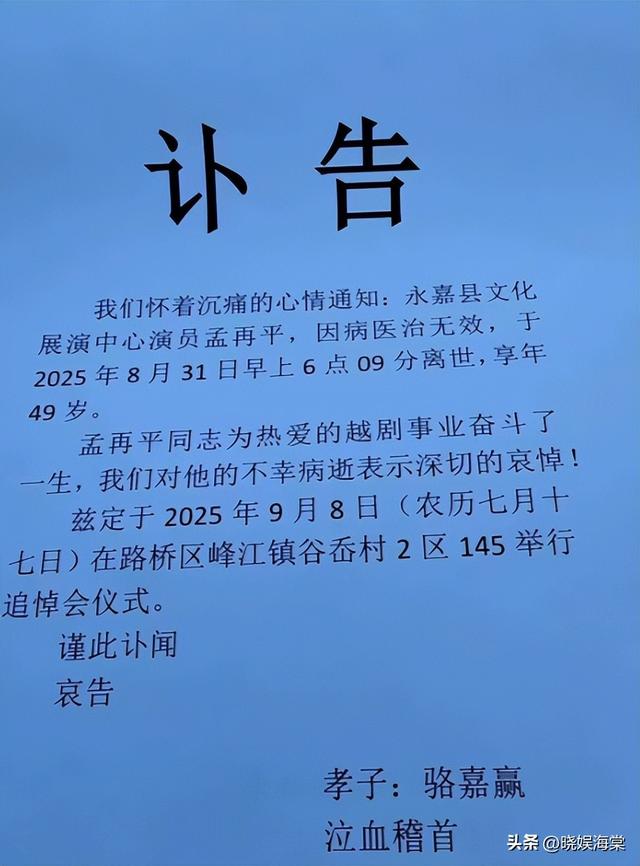 讣告
我们怀着沉痛的心情通知：永嘉县文化
展演中心演员孟再平，因病医治无效，于
2025年8月31日早上6点09分离世，享年
49岁。
孟再平同志为热爱的越剧事业奋斗了
一生，我们对他的不幸病逝表示深切的哀悼！
兹定于2025年9月8日（农历七月十
七日）在路桥区峰江镇谷岙村2区145举行
追悼会仪式。
谨此讣闻
哀告
孝子：骆嘉赢
泣血稽首
头条 @晓娱海棠